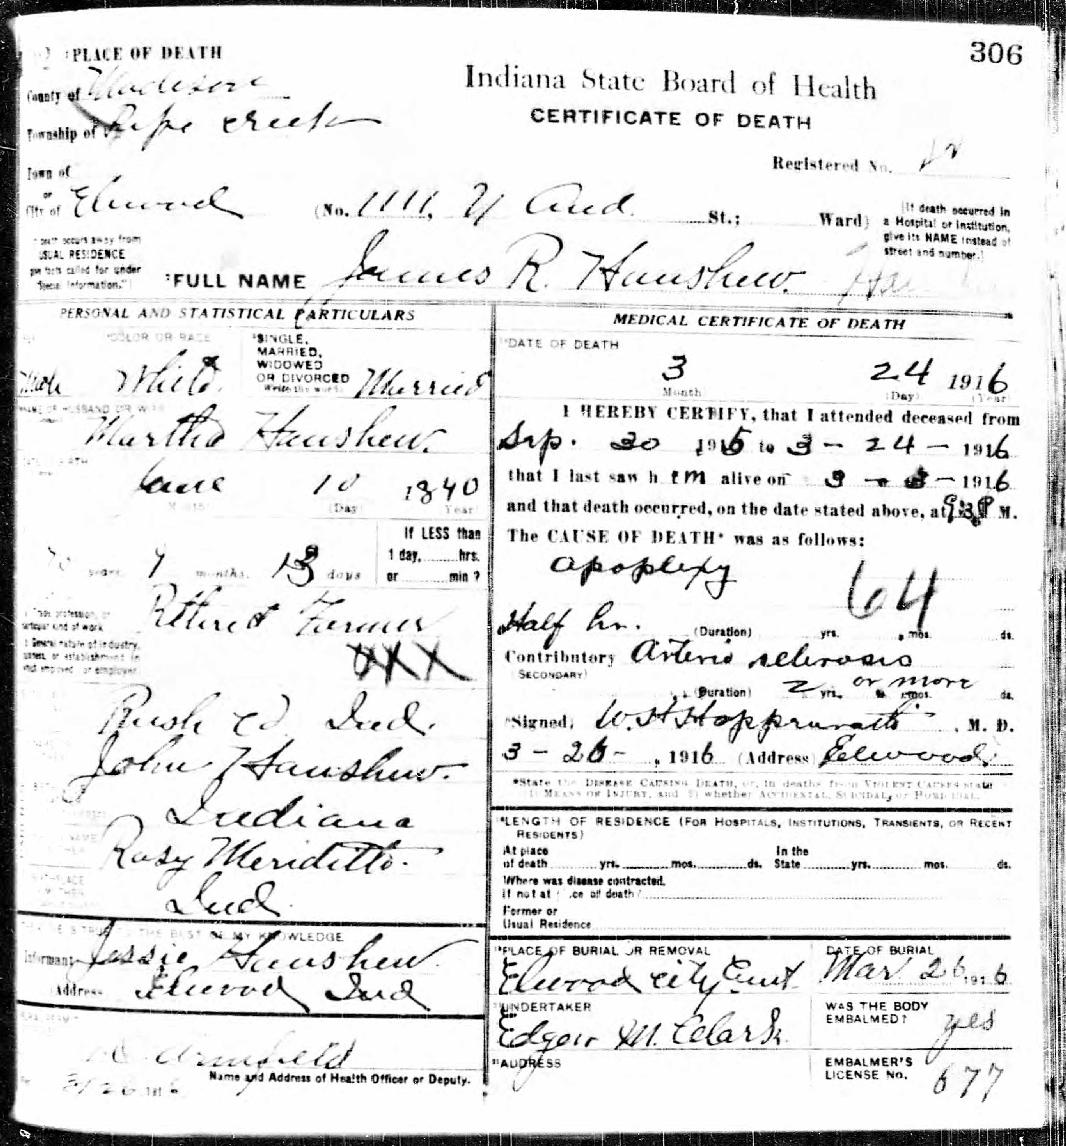 306
PLACE OF DEATH
County of Madison
Township of Pipe Creek
Indiana State Board of Health
CERTIFICATE OF DEATH
Registered No.
Town of
or
City of Elwood (No. 1111. N And. St.; Ward)
(If death occurred in
a Hospital or Institution,
give its NAME instead of
street and number.)
death occurs away from
USUAL RESIDENCE
give facts called for under
"Special Information.")
FULL NAME James R. Hanshew.
PERSONAL AND STATISTICAL PARTICULARS
COLOR OR RACE
Male White
SINGLE,
MARRIED,
WIDOWED
OR DIVORCED
Write the word
Married
NAME OF HUSBAND OR WIFE
Martha Hanshew.
June 10 1840
(Day) Year
years 9 months 13 days
If LESS than
1 day, hrs.
or min?
Trade, profession, or
particular kind of work
General nature of industry,
business, or establishment in
which employed or employer
Retired Farmer
XXX
Rush Co Ind.
John Hanshew.
Indiana
Rosy Meriditto.
Ind
THE BEST OF MY KNOWLEDGE
Informant Jessie Hanshew.
(Address Elwood Ind
Armfield
3/26 1916
Name and Address of Health Officer or Deputy.
MEDICAL CERTIFICATE OF DEATH
DATE OF DEATH
3 24 1916
Month (Day) (Year)
I HEREBY CERTIFY, that I attended deceased from
Sep. 30 1915 to 3-24-1916
that I last saw him alive on 3-3-1916
and that death occurred, on the date stated above, at 9:30 P M.
The CAUSE OF DEATH* was as follows:
Apoplexy
64
Half hr. (Duration) yrs. mos. ds.
Contributory Arterio sclerosis
(SECONDARY)
(Duration) 2 yrs. or more mos. ds.
Signed, M. D.
3-26-, 1916 (Address) Elwood
*State the DISEASE CAUSING DEATH, or, in deaths from VIOLENT CAUSES state
(1) MEANS OF INJURY, and (2) whether ACCIDENTAL, SUICIDAL, or HOMICIDAL.
LENGTH OF RESIDENCE (FOR HOSPITALS, INSTITUTIONS, TRANSIENTS, OR RECENT
RESIDENTS)
At place
of death yrs. mos. ds.
In the
State yrs. mos. ds.
Where was disease contracted,
if not at place of death?
Former or
Usual Residence
PLACE OF BURIAL OR REMOVAL
Elwood City Cemt.
DATE OF BURIAL
Mar 26 1916
UNDERTAKER
Edgar M. Clark.
WAS THE BODY
EMBALMED? yes
ADDRESS
EMBALMER'S
LICENSE NO. 677